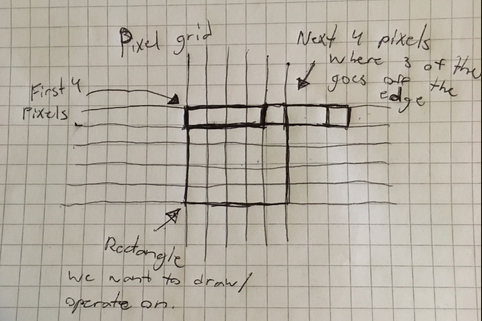 Pixel grid
Next 4 pixels
where 3 of the
goes off the
edge
First 4
Pixels
Rectangle
we want to draw/
operate on.